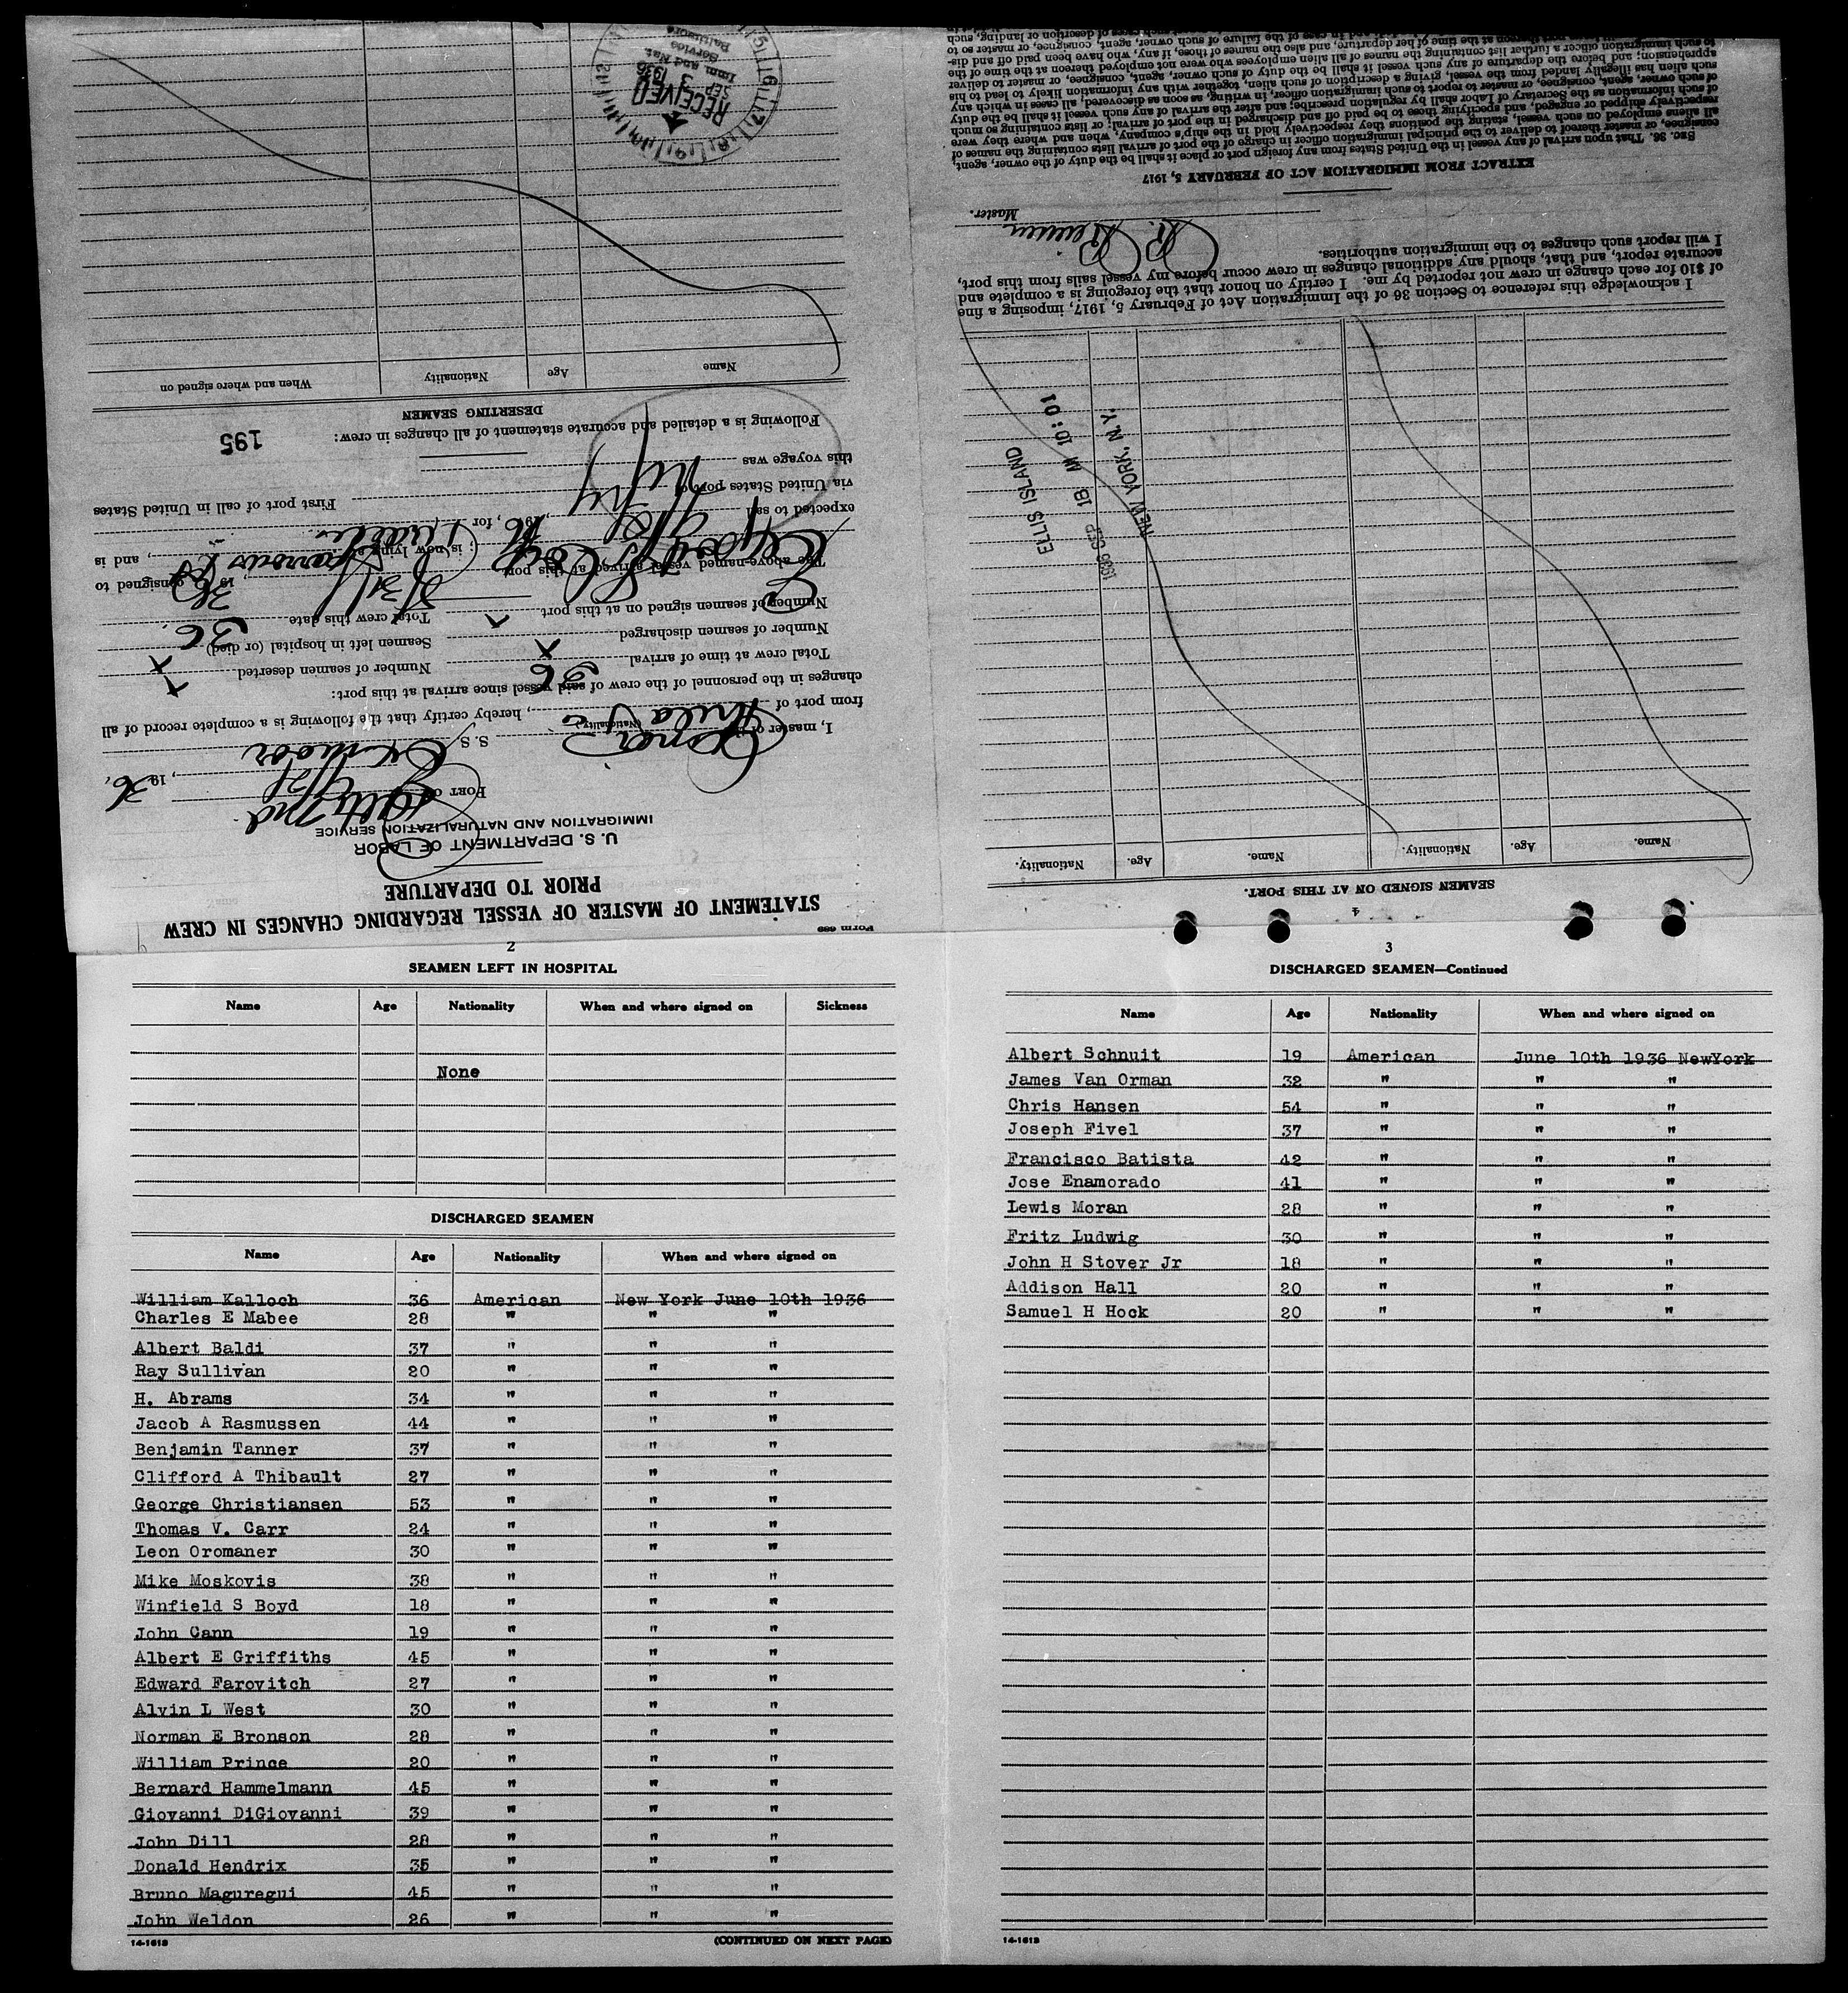 Form 689
STATEMENT OF MASTER OF VESSEL REGARDING CHANGES IN CREW
PRIOR TO DEPARTURE
U. S. DEPARTMENT OF LABOR
IMMIGRATION AND NATURALIZATION SERVICE
PORT OF
, 19 36,
I, master of S. S.
(Nationality)
from port of Phila , hereby certify that the following is a complete record of all
changes in the personnel of the crew of said vessel since arrival at this port:
Total crew at time of arrival 36 Number of seamen deserted x
Number of seamen discharged x Seamen left in hospital (or died) x
Number of seamen signed on at this port x Total crew this date 36
The above-named vessel arrived at this port , 19 36, consigned to
; is now lying at , and is
expected to sail , 19 , for
via United States port of First port of call in United States
this voyage was
Following is a detailed and accurate statement of all changes in crew: 195
DESERTING SEAMEN
Name Age Nationality When and where signed on
RECEIVED
SEP 3 1936
Imm and Nat.
Service
Baltimore
4
SEAMEN SIGNED ON AT THIS PORT.
Name. Age. Nationality. Name. Age. Nationality.
ELLIS ISLAND
1936 SEP 18 M 10: 01
NEW YORK, N. Y.
I acknowledge this reference to Section 36 of the Immigration Act of February 5, 1917, imposing a fine
of $10 for each change in crew not reported by me. I certify on honor that the foregoing is a complete and
accurate report, and that, should any additional changes in crew occur before my vessel sails from this port,
I will report such changes to the immigration authorities.
Master.
EXTRACT FROM IMMIGRATION ACT OF FEBRUARY 5, 1917
SEC. 36. That upon arrival of any vessel in the United States from any foreign port or place it shall be the duty of the owner, agent,
consignee, or master thereof to deliver to the principal immigration officer in charge of the port of arrival lists containing the names of
all aliens employed on such vessel, stating the positions they respectively hold in the ship's company, when and where they were
respectively shipped or engaged, and specifying those to be paid off and discharged in the port of arrival; or lists containing so much
of such information as the Secretary of Labor shall by regulation prescribe; and after the arrival of any such vessel it shall be the duty
of such owner, agent, consignee, or master to report to such immigration officer, in writing, as soon as discovered, all cases in which any
such alien has illegally landed from the vessel, giving a description of such alien, together with any information likely to lead to his
apprehension; and before the departure of any such vessel it shall be the duty of such owner, agent, consignee, or master to deliver
to such immigration officer a further list containing the names of all alien employees who were not employed thereon at the time of the
2
SEAMEN LEFT IN HOSPITAL
Name Age Nationality When and where signed on Sickness
None
DISCHARGED SEAMEN
Name Age Nationality When and where signed on
William Kalloch 36 American New York June 10th 1936
Charles E Mabee 28 " " "
Albert Baldi 37 " " "
Ray Sullivan 20 " " "
H. Abrams 34 " " "
Jacob A Rasmussen 44 " " "
Benjamin Tanner 37 " " "
Clifford A Thibault 27 " " "
George Christiansen 53 " " "
Thomas V. Carr 24 " " "
Leon Oromaner 30 " " "
Mike Moskovis 38 " " "
Winfield S Boyd 18 " " "
John Cann 19 " " "
Albert E Griffiths 45 " " "
Edward Farovitch 27 " " "
Alvin L West 30 " " "
Norman E Bronson 28 " " "
William Prince 20 " " "
Bernard Hammelmann 45 " " "
Giovanni DiGiovanni 39 " " "
John Dill 28 " " "
Donald Hendrix 35 " " "
Bruno Maguregui 45 " " "
John Weldon 26 " " "
14-1613 (CONTINUED ON NEXT PAGE)
3
DISCHARGED SEAMEN—Continued
Name Age Nationality When and where signed on
Albert Schnuit 19 American June 10th 1936 NewYork
James Van Orman 32 " " "
Chris Hansen 54 " " "
Joseph Fivel 37 " " "
Francisco Batista 42 " " "
Jose Enamorado 41 " " "
Lewis Moran 28 " " "
Fritz Ludwig 30 " " "
John H Stover Jr 18 " " "
Addison Hall 20 " " "
Samuel H Hock 20 " " "
14-1613